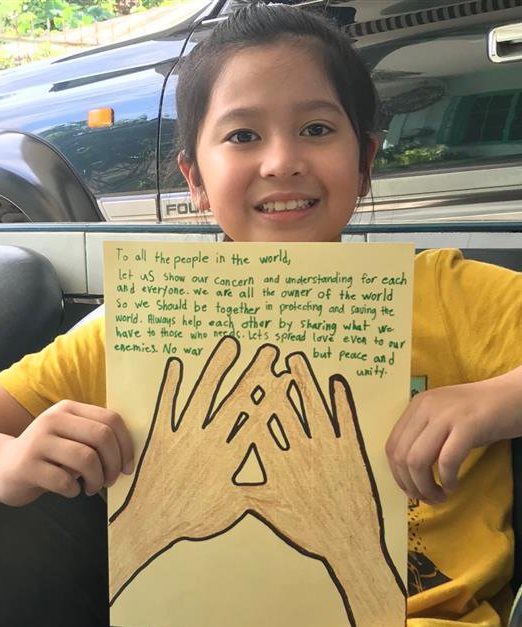 FOU
To all the people in the world,
let us show our concern and understanding for each
and everyone. we are all the owner of the world
so we should be together in protecting and saving the
world. Always help each other by sharing what we
have to those who needs. Lets spread love even to our
enemies. No war but peace and
unity.